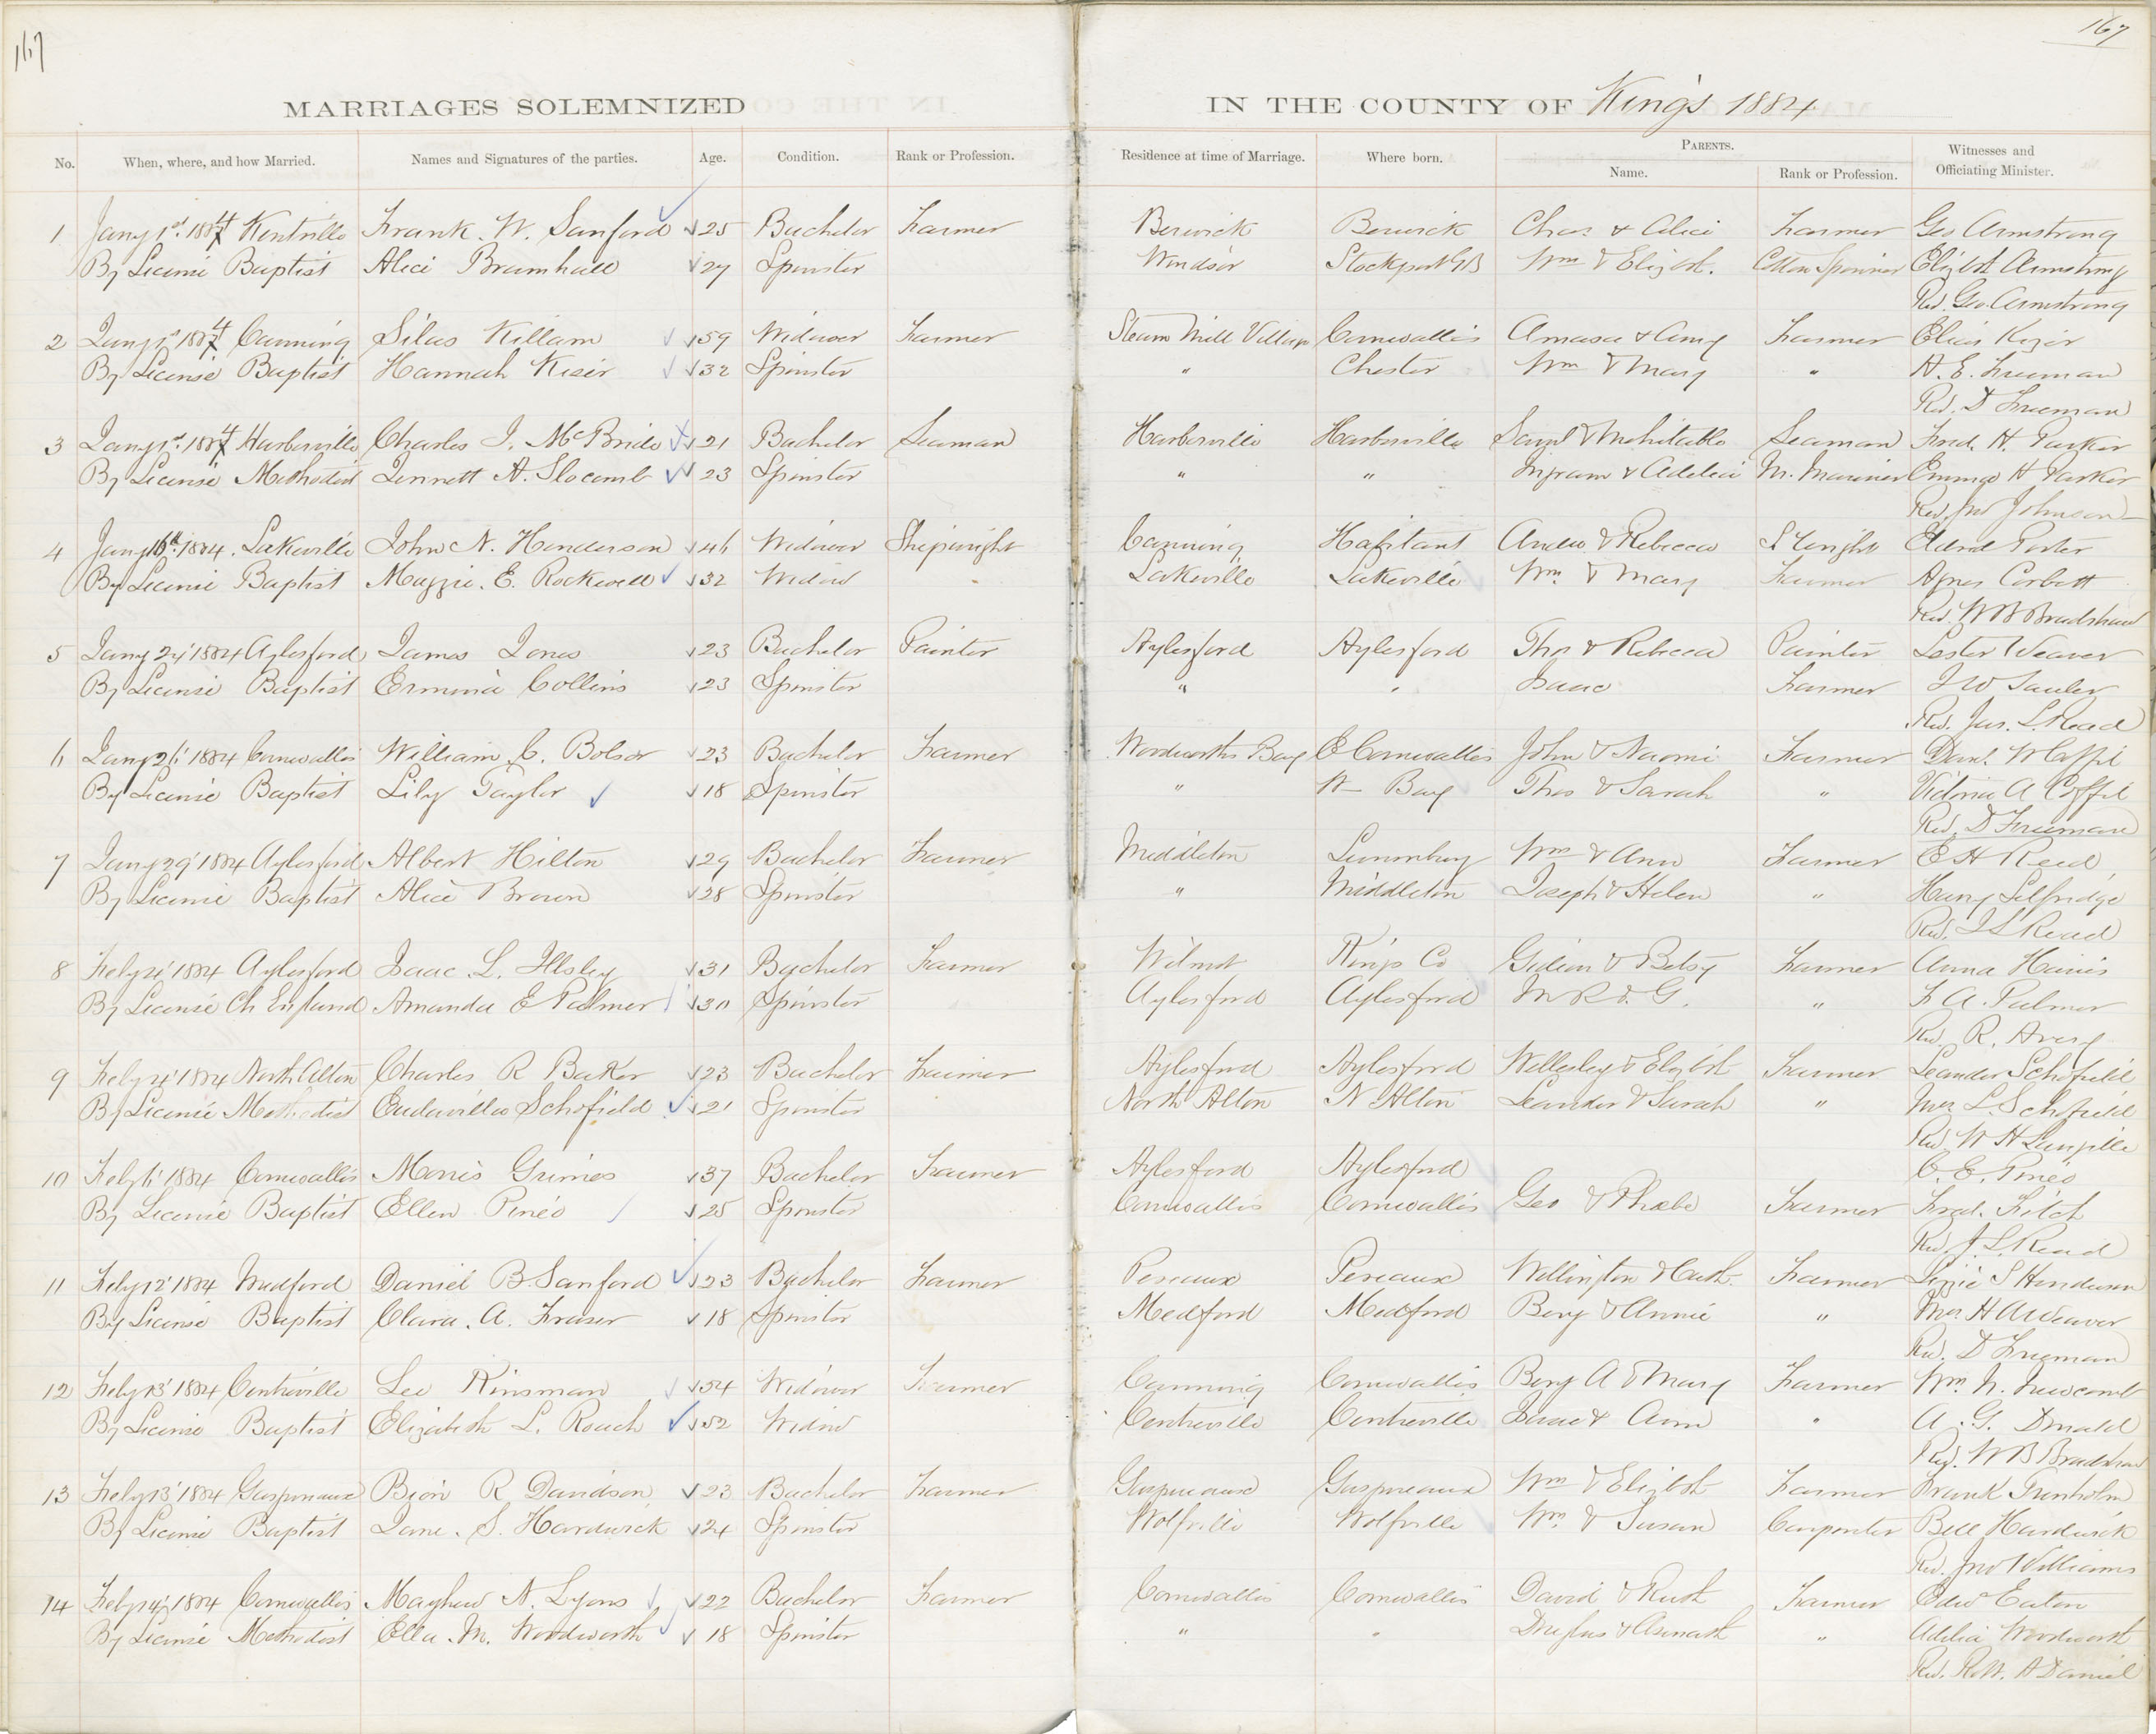 167
167
MARRIAGES SOLEMNIZED IN THE COUNTY OF Kings 1884
No. When, where, and how Married. Names and Signatures of the parties. Age. Condition. Rank or Profession. Residence at time of Marriage. Where born. PARENTS. Name. Rank or Profession. Witnesses and Officiating Minister.
1 Jany 1st 1884 Kentville Frank. W. Sanford 25 Bachelor Farmer Berwick Berwick Chas & Alice Farmer Geo Armstrong
By License Baptist Alice Bramhall 27 Spinster Windsor Stockport GB Wm & Elizbth. Cotton Spinner Elizbth Armstrong
Rev. Geo. Armstrong
2 Jany 1st 1884 Canning Silas Killam 59 Widower Farmer Steam Mill Village Cornwallis Amasa & Amy Farmer Elias
By License Baptist Hannah Kiser 32 Spinster " Chester Wm & Mary " A. E. Freeman
Rev. D Freeman
3 Jany 1st 1884 Harborville Charles I. McBride 21 Bachelor Seaman Harborville Harborville Saml & Mehitable Seaman Fred. H. Parker
By License Methodist Jennett A. Slocomb 23 Spinster " " Ingram & Adelia M. Mariner Emma H Parker
Rev. Jno Johnson
4 Jany 16th 1884. Lakeville John N. Henderson 46 Widower Shipwright Canning Habitant Andw & Rebecca S Wright Porter
By License Baptist Maggie. E. Rockwell 32 Widow Lakeville Lakeville Wm & Mary Farmer Agnes Corbett
Rev. W B Bradshaw
5 Jany 24 1884 Aylesford James Jones 23 Bachelor Painter Aylesford Aylesford Thos & Rebecca Painter Lester Weaver
By License Baptist Erminia Collins 23 Spinster " " Isaac Farmer J W
Rev. Jas. L. Read
6 Jany 26 1884 Cornwallis William C. Bolsor 23 Bachelor Farmer Woodworths Bay E Cornwallis John & Naomi Farmer Danl. W Coffil
By License Baptist Lily Taylor 18 Spinster " W Bay Thos & Sarah " Victoria A Coffil
Rev. D Freeman
7 Jany 29 1884 Aylesford Albert Hilton 29 Bachelor Farmer Middleton Lunenburg Wm & Ann Farmer E H Reed
By License Baptist Alice Brown 28 Spinster " Middleton Joseph & Helen " Harry Selfridge
Rev. J L Read
8 Feby 4 1884 Aylesford Isaac L. Illsley 31 Bachelor Farmer Wilmot Kings Co Gideon & Betsy Farmer Anna Harris
By License Ch England Amanda E Palmer 30 Spinster Aylesford Aylesford M R & G. " F A. Palmer
Rev. R. Avery
9 Feby 4 1884 North Alton Charles R Baker 23 Bachelor Farmer Aylesford Aylesford Wellesley & Elizbth Farmer Leander Schofield
By License Methodist Eudavilla Schofield 21 Spinster North Alton N Alton Leander & Sarah " Mrs L. Schofield
Rev. W H
10 Feby 6 1884 Cornwallis Morris Grimes 37 Bachelor Farmer Aylesford Aylesford C. E. Pineo
By License Baptist Ellen Pineo 25 Spinster Cornwallis Cornwallis Geo & Phebe Farmer Fred. Fitch
Rev. J. L. Read
11 Feby 12 1884 Medford Daniel B. Sanford 23 Bachelor Farmer Pereaux Pereaux Wellington & Cath. Farmer Lizzie S Henderson
By License Baptist Clara. A. Fraser 18 Spinster Medford Medford Benj & Annie " Mrs. H A Weaver
Rev. D Freeman
12 Feby 13 1884 Centreville Lee Kinsman 54 Widower Farmer Canning Cornwallis Benj A & Mary Farmer Wm. N. Newcomb
By License Baptist Elizabeth L. Roach 52 Widow Centreville Centreville Isaac & Ann " A. G. Donald
Rev. W B Bradshaw
13 Feby 13 1884 Gaspereaux Bion R Davidson 23 Bachelor Farmer Gaspereaux Gaspereaux Wm & Elizbth Farmer Frank Trenholm
By License Baptist Jane. S. Hardwick 24 Spinster Wolfville Wolfville Wm & Susan Carpenter Bell Hardwick
Rev. Jno Williams
14 Feby 14 1884 Cornwallis Mayhew N. Lyons 22 Bachelor Farmer Cornwallis Cornwallis David & Ruth Farmer Edw Eaton
By License Methodist Ella. M. Woodworth 18 Spinster " " & Asenath " Adelia Woodworth
Rev.